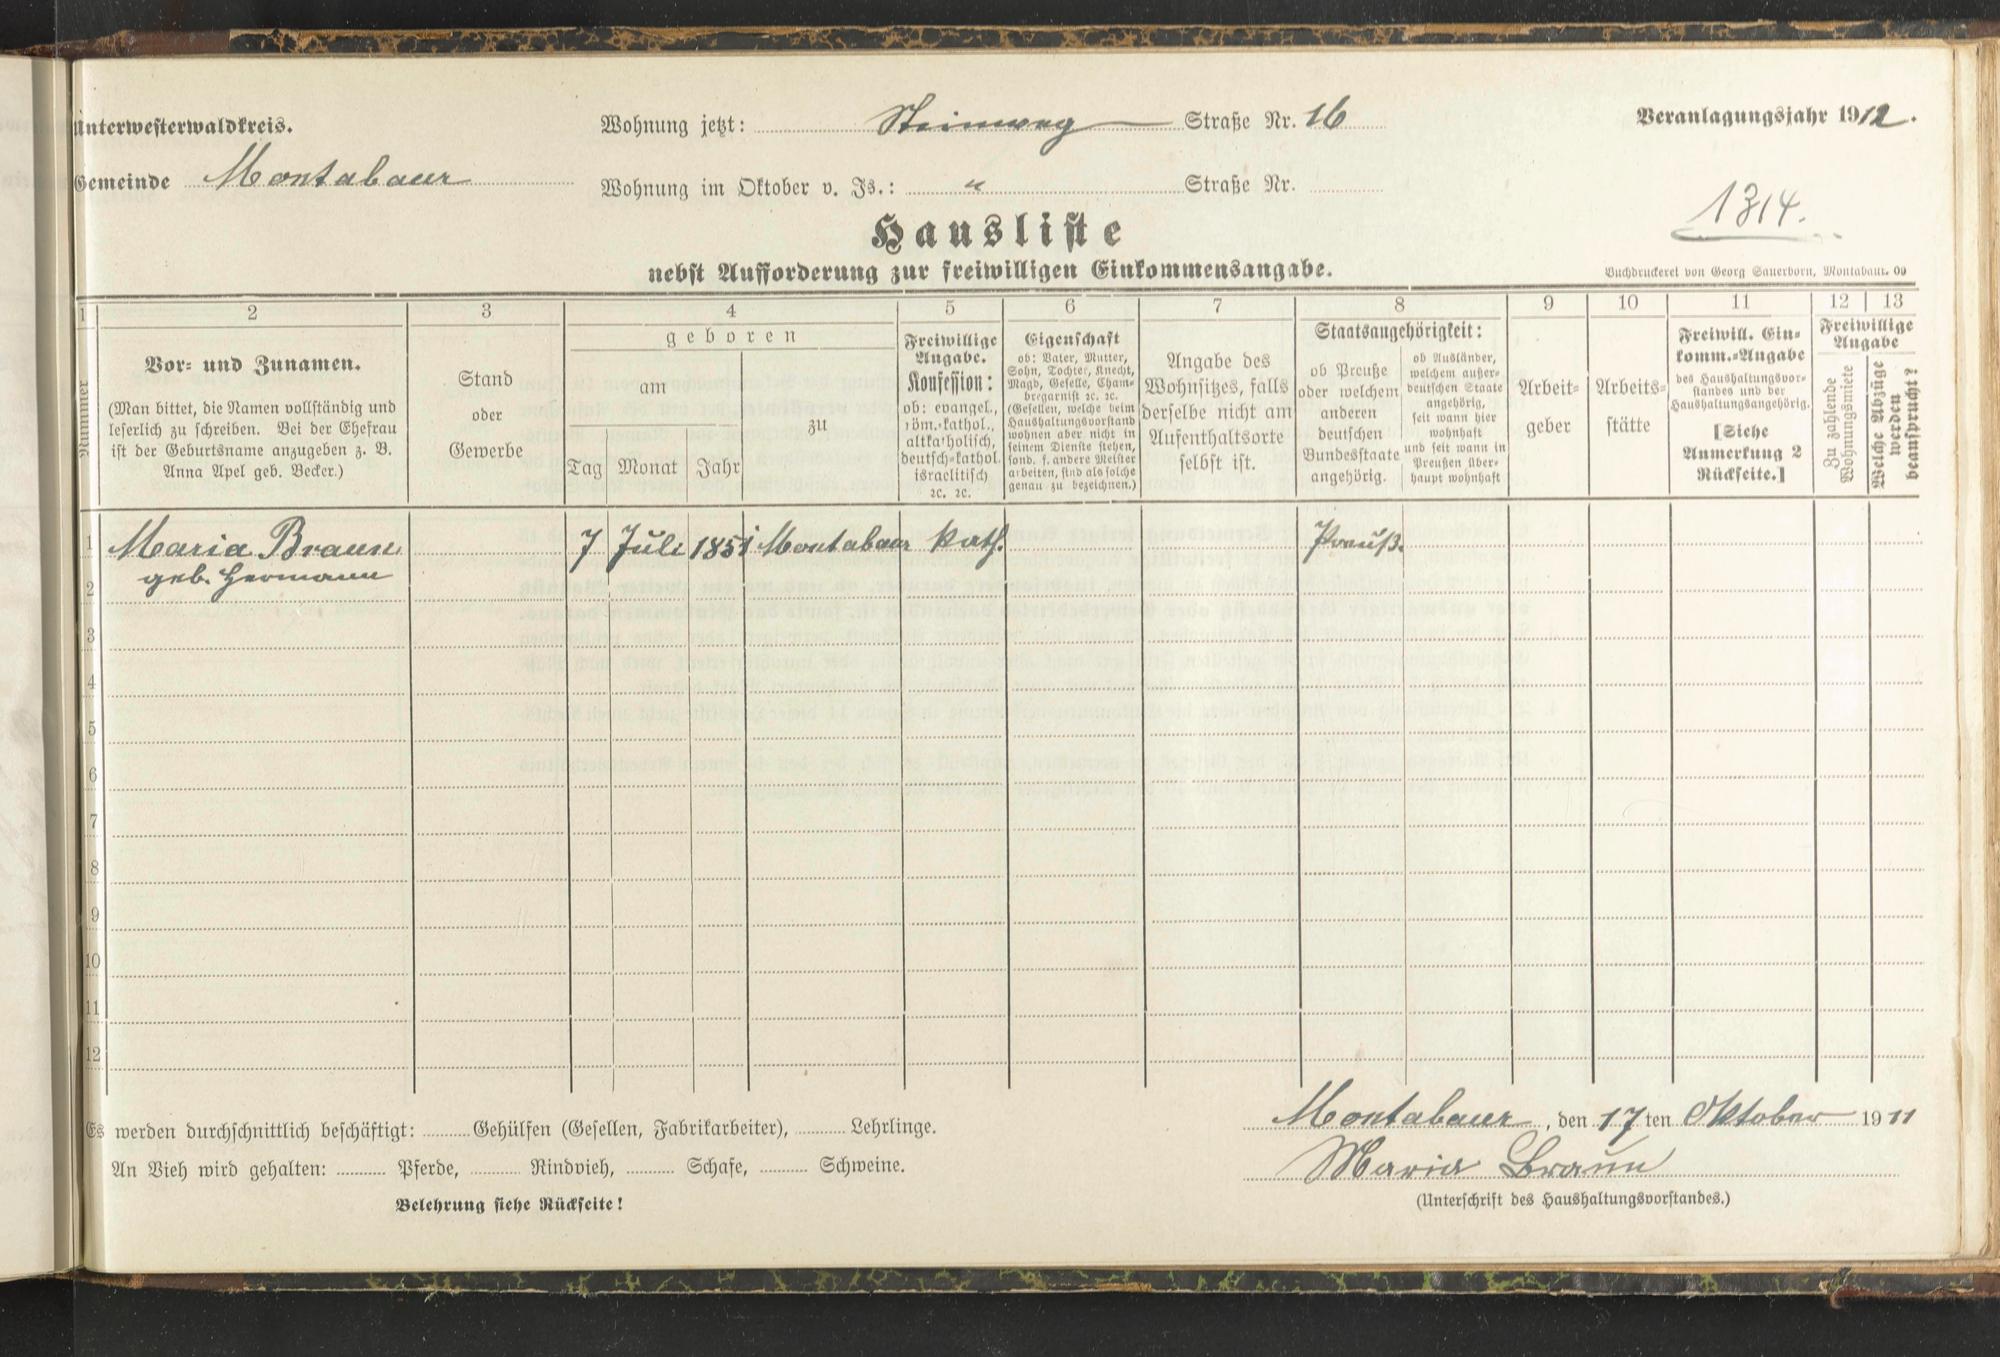 Unterwesterwaldkreis.
Wohnung jetzt: Steinweg Straße Nr. 16
Veranlagungsjahr 1912.
Gemeinde Montabaur
Wohnung im Oktober v. Js.: " Straße Nr.
1314.
Hausliste
nebst Aufforderung zur freiwilligen Einkommensangabe.
Buchdruckerei von Georg Sauerborn, Montabaur. 09
1 2 3 4 5 6 7 8 9 10 11 12 13
Nummer
Vor- und Zunamen.
(Man bittet, die Namen vollständig und
leserlich zu schreiben. Bei der Ehefrau
ist der Geburtsname anzugeben z. B.
Anna Apel geb. Becker.)
Stand
oder
Gewerbe
geboren
am
zu
Tag Monat Jahr
Freiwillige
Angabe.
Konfession:
ob: evangel.,
röm.-kathol.,
altkatholisch,
deutsch-kathol.
israelitisch
ꝛc. ꝛc.
Eigenschaft
ob: Vater, Mutter,
Sohn, Tochter, Knecht,
Magd, Geselle, Cham-
bregarnist ꝛc. ꝛc.
(Gesellen, welche beim
Haushaltungsvorstand
wohnen aber nicht in
seinem Dienste stehen,
sond. f. andere Meister
arbeiten, sind als solche
genau zu bezeichnen.)
Angabe des
Wohnsitzes, falls
derselbe nicht am
Aufenthaltsorte
selbst ist.
Staatsangehörigkeit:
ob Preuße
oder welchem
anderen
deutschen
Bundesstaate
angehörig.
ob Ausländer,
welchem außer-
deutschen Staate
angehörig,
seit wann hier
wohnhaft
und seit wann in
Preußen über-
haupt wohnhaft
Arbeit-
geber
Arbeits-
stätte
Freiwill. Ein-
komm.-Angabe
des Haushaltungsvor-
standes und der
Haushaltungsangehörig.
[Siehe
Anmerkung 2
Rückseite.]
Freiwillige
Angabe
Zu zahlende
Wohnungsmiete
Welche Abzüge
werden
beansprucht?
1 Maria Braun 7 Juli 1851 Montabaur kath. Preuß.
geb. Hermann
2
3
4
5
6
7
8
9
10
11
12
Es werden durchschnittlich beschäftigt: Gehülfen (Gesellen, Fabrikarbeiter), Lehrlinge.
An Vieh wird gehalten: Pferde, Rindvieh, Schafe, Schweine.
Belehrung siehe Rückseite!
Montabaur, den 17 ten Oktober 1911
Maria Braun
(Unterschrift des Haushaltungsvorstandes.)